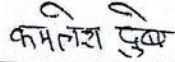 कमलेश दुबे